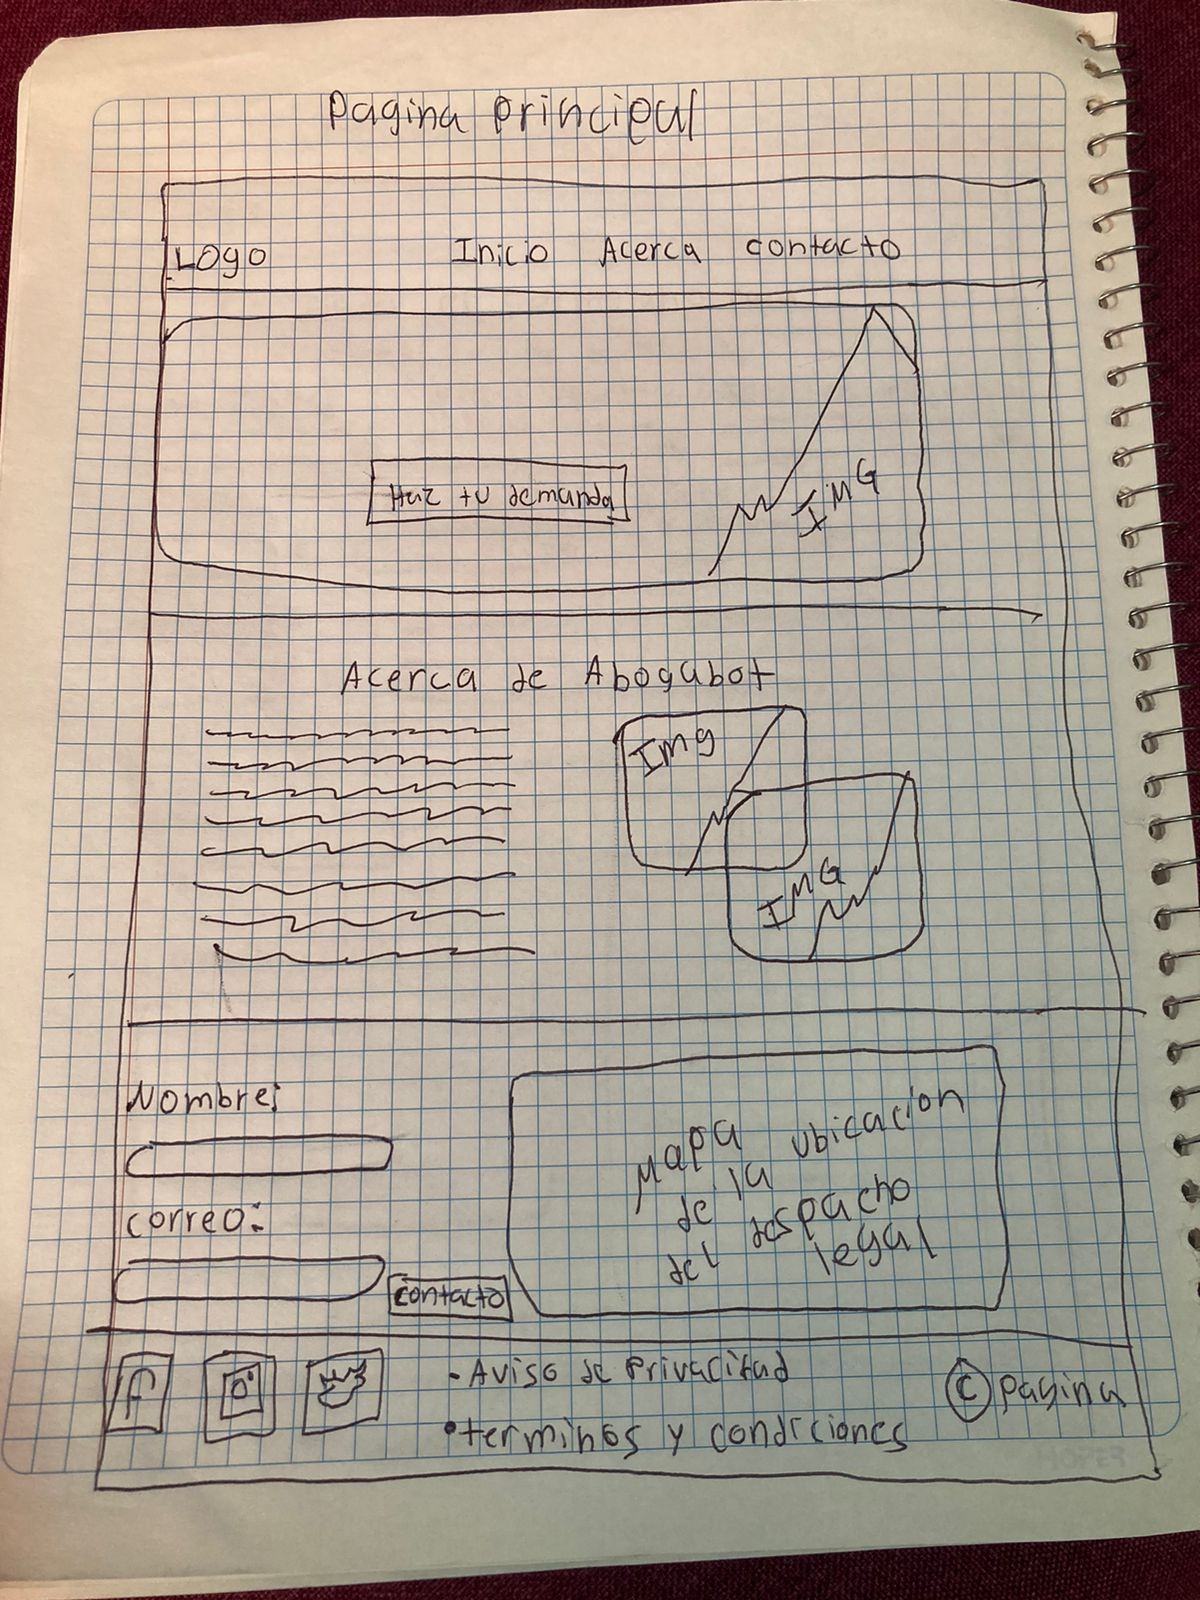 Pagina principal
Logo Inicio Acerca contacto
Haz tu demanda
IMG
Acerca de Abogabot
Img
IMG
Nombre:
correo:
contacto
Mapa ubicacion
de la
del despacho
legal
f
- Aviso de privacidad
• terminos y condiciones
© pagina